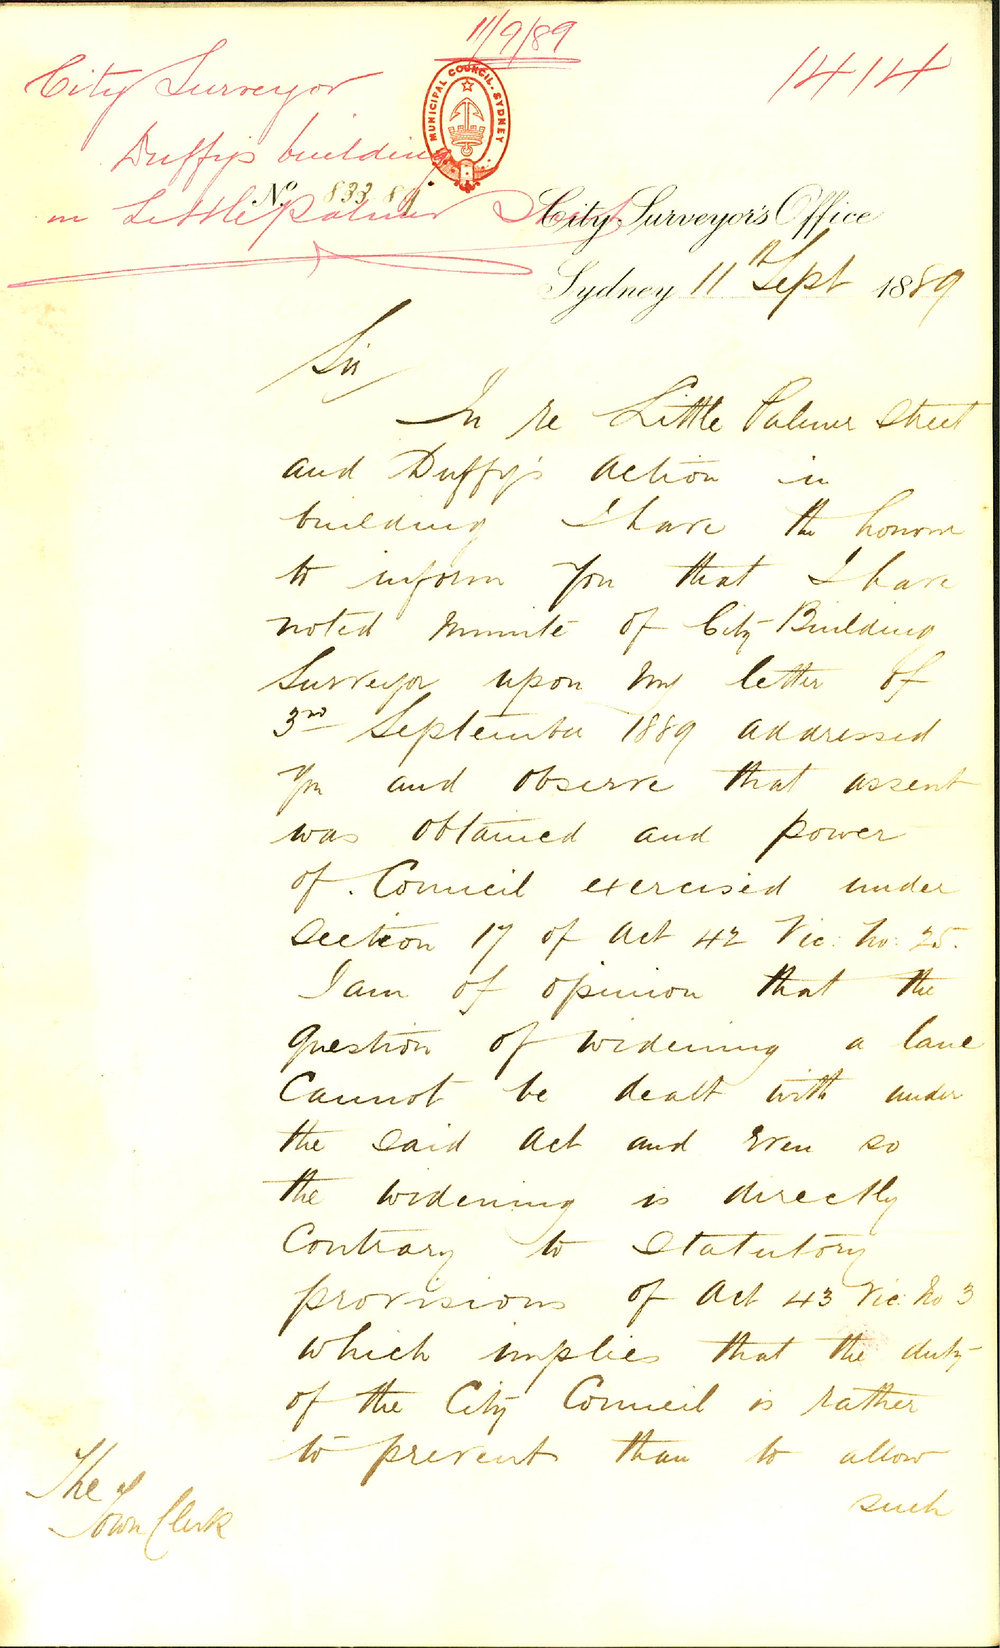 11/9/89
1414
City Surveyor
Duffy's building
in Little Palmer Street
MUNICIPAL COUNCIL. SYDNEY
No. 833 89.
City Surveyor's Office
Sydney 11th Sept 1889
Sir
In re Little Palmer Street
and Duffy's action in
building I have the honour
to inform you that I have
noted minute of City Building
Surveyor upon my letter of
3rd September 1889 addressed
you and observe that assent
was obtained and power
of Council exercised under
Section 17 of Act 42 Vic: No: 25.
I am of opinion that the
question of widening a lane
cannot be dealt with under
the said Act and even so
the widening is directly
contrary to statutory
provisions of Act 43 Vic: No 3
which implies that the duty
of the City Council is rather
to prevent than to allow
such
The
Town Clerk